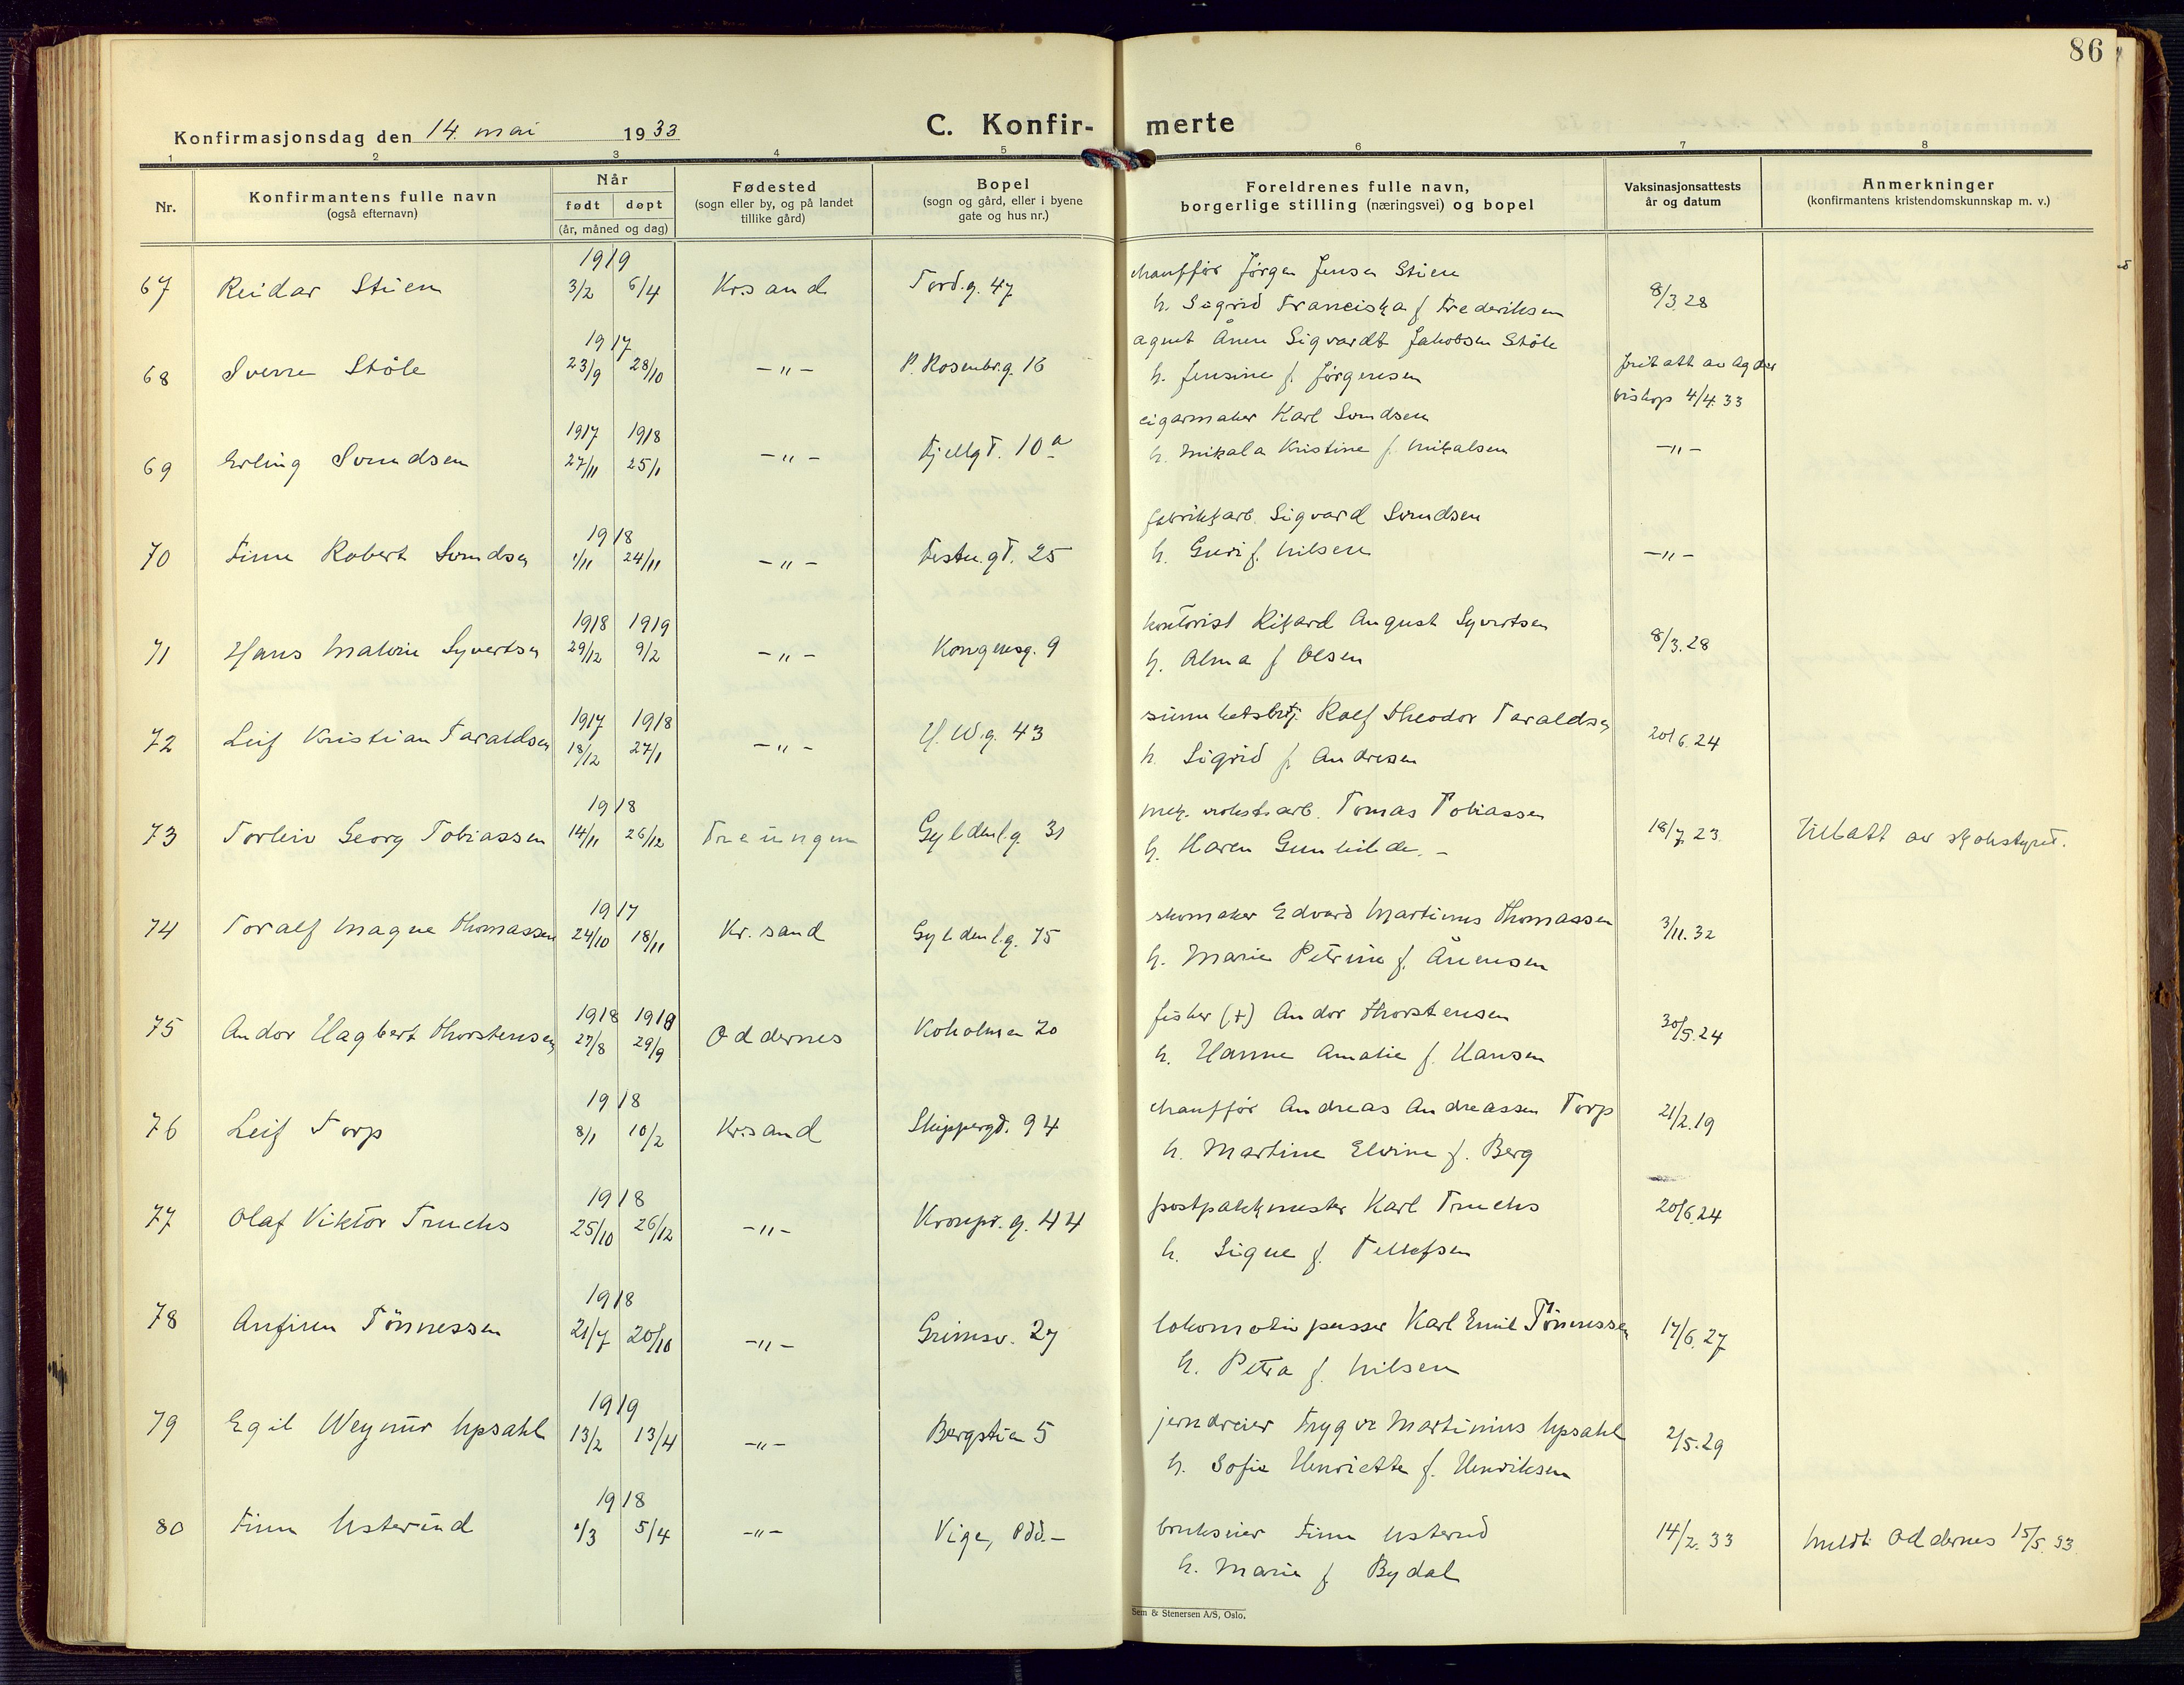 86
Konfirmasjonsdag den 14. mai 1933
C. Konfirmerte
1 2 3 4 5 6 7 8
Nr.
Konfirmantens fulle navn
(også efternavn)
Når
født døpt
(år, måned og dag)
Fødested
(sogn eller by, og på landet
tillike gård)
Bopel
(sogn og gård, eller i byene
gate og hus nr.)
Foreldrenes fulle navn,
borgerlige stilling (næringsvei) og bopel
Vaksinasjonsattests
år og datum
Anmerkninger
(konfirmantens kristendomskunnskap m. v.)
1919
67 Reidar Stien 3/2 6/4 Kr.sand Tord.g. 47 chauffør Jørgen Jensen Stien 8/3.28
h. Sigrid Franciska f. Frederiksen
1917
68 Sverre Støle 23/9 28/10 -"- P. Rosenbr.g. 16 agent Ånen Sigvardt Jakobsen Støle fritatt av Agder
h. Jensine f. Jørgensen biskop 4/4.33
1917 1918
69 Erling Svendsen 27/11 25/1 -"- Fjellgt. 10a cigarmaker Karl Svendsen -"-
h. Mikala Kristine f. Mikalsen
1918
70 Finn Robert Svendsen 1/11 24/11 -"- Festn.gt. 25 fabrikkarb. Sigvard Svendsen -"-
h. Guri f. Nilsen
1918 1919
71 Hans Malvin Syvertsen 29/12 9/2 -"- Kongensg. 9 kontorist Rikard August Syvertsen 8/3.28
h. Alma f. Olsen
1917 1918
72 Leif Kristian Taraldsen 18/12 27/1 -"- H.W.g. 43 Rolf Theodor Taraldsen 20/6.24
h. Sigrid f. Andresen
1918
73 Torleiv Georg Tobiassen 14/11 26/12 Treungen Gyldenl.g. 31 mek. verkstsarb. Tomas Tobiassen 18/7.23 Tillatt av skolestyret.
h. Haren Gunhilde. -
1917
74 Toralf Magne Thomassen 24/10 18/11 Kr.sand Gyldenl.g. 75 skomaker Edvard Martinus Thomassen 3/11.32
h. Marie Petrine f. Ånensen
1918 1919
75 Andor Hagbert Thorstensen 27/8 29/9 Oddernes Koholmen 20 fisker (+) Andor Thorstensen 30/5.24
h. Hanne Amalie f. Hansen
1918
76 Leif Torp 8/1 10/2 Kr.sand Skippergt. 94 chauffør Andreas Andreassen Torp 21/2.19
h. Martine Elvine f. Berg
1918
77 Olaf Viktor Truchs 25/10 26/12 -"- Kronpr.g. 44 postpakkmester Karl Truchs 20/6.24
h. Signe f. Tellefsen
1918
78 Anfinn Tönnessen 21/7 20/10 -"- Grimsv. 27 lokomotivpusser Karl Emil Tönnessen 17/6.27
h. Petra f. Nilsen
1919
79 Egil Weynür Upsahl 13/2 13/4 -"- Bergstien 5 jerndreier Trygve Martinius Upsahl 2/5.29
h. Sofie Henriette f. Henriksen
1918
80 Finn Usterud 1/3 5/4 -"- Vige, Odd.- brukseier Finn Usterud 14/2.33 Meldt Oddernes 15/5.33
h. Marie f. Bydal
Sem & Stenersen A/S, Oslo.